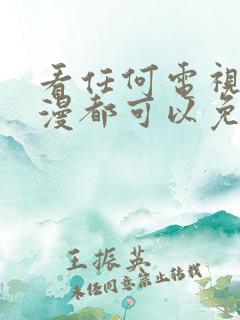 看任何電視
漫都可以免
王振英
未任同意禁止转载